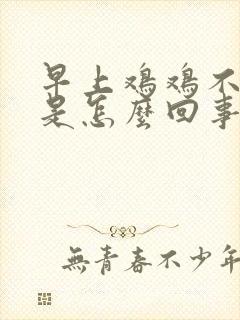 早上鸡鸡不
是怎麼回事
無青春不少年